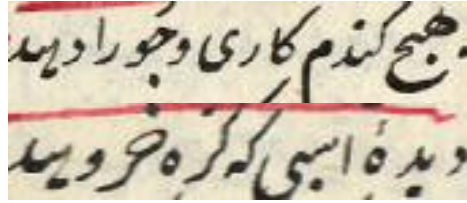 هیچ گندم کاری و جو را دهد
دیدهٔ اسبی که کره خر دهد